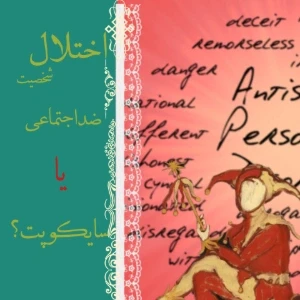 اختلال
شخصیت
ضداجتماعی
یا
سایکوپت؟
deceit
remorseless
danger
Antis
rational
different
Perso
honest
cynical
disregard
wit